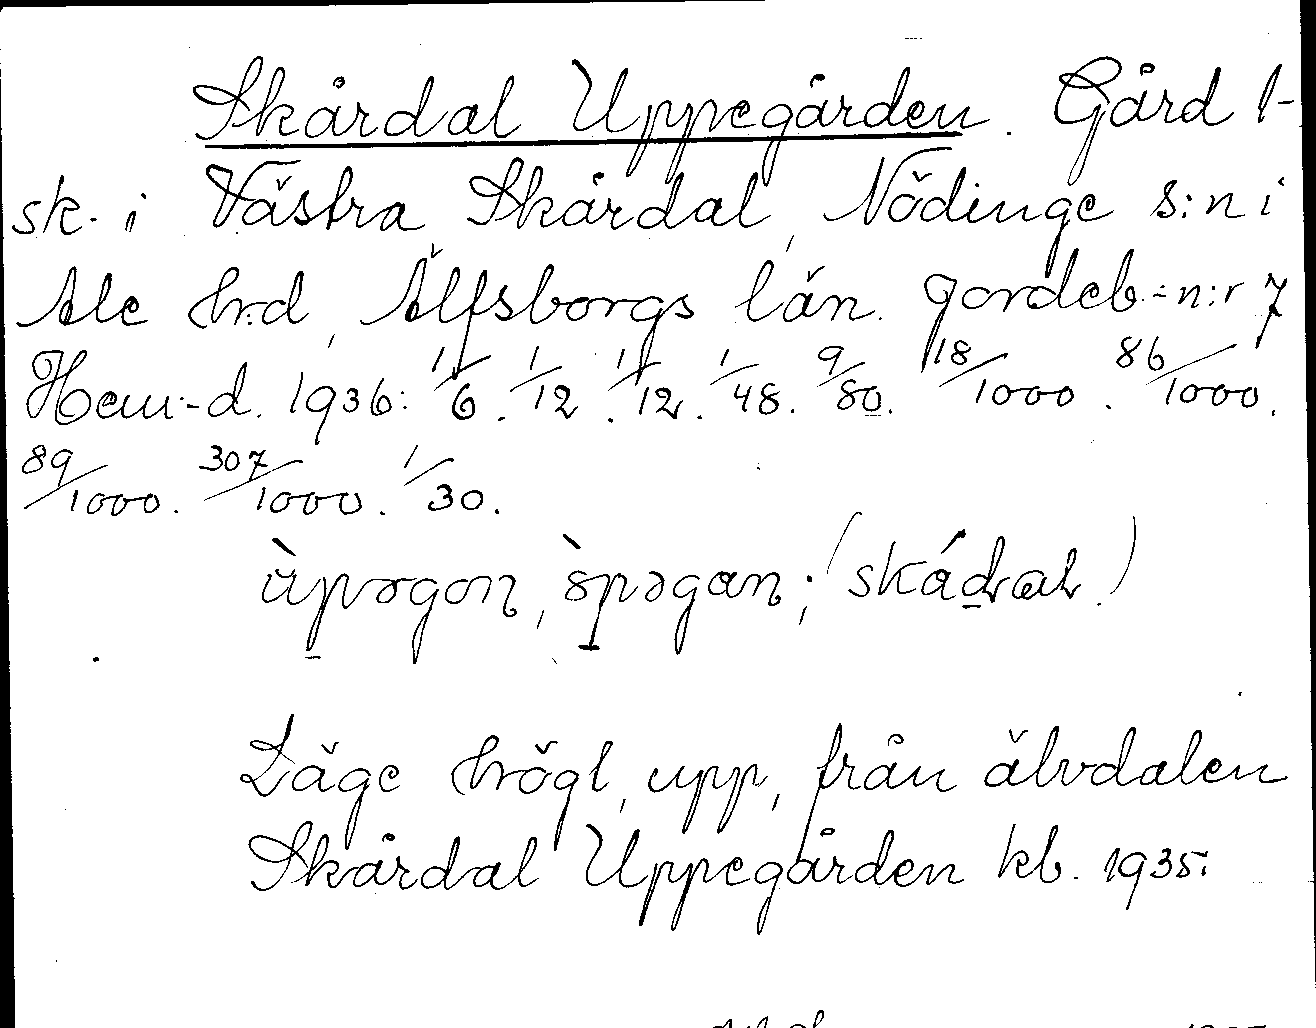 Skårdal Uppegården. Gård l-
sk. i Västra Skårdal, Nödinge s:n i
Ale hrd, Älfsborgs län. Jordeb.-n:r 7
Hem.-d. 1936: 1/6. 1/12. 1/12. 1/48. 9/80. 18/1000. 86/1000.
89/1000. 307/1000. 1/30.
Läge högt, upp, från älvdalen
Skårdal Uppegården kb. 1935.